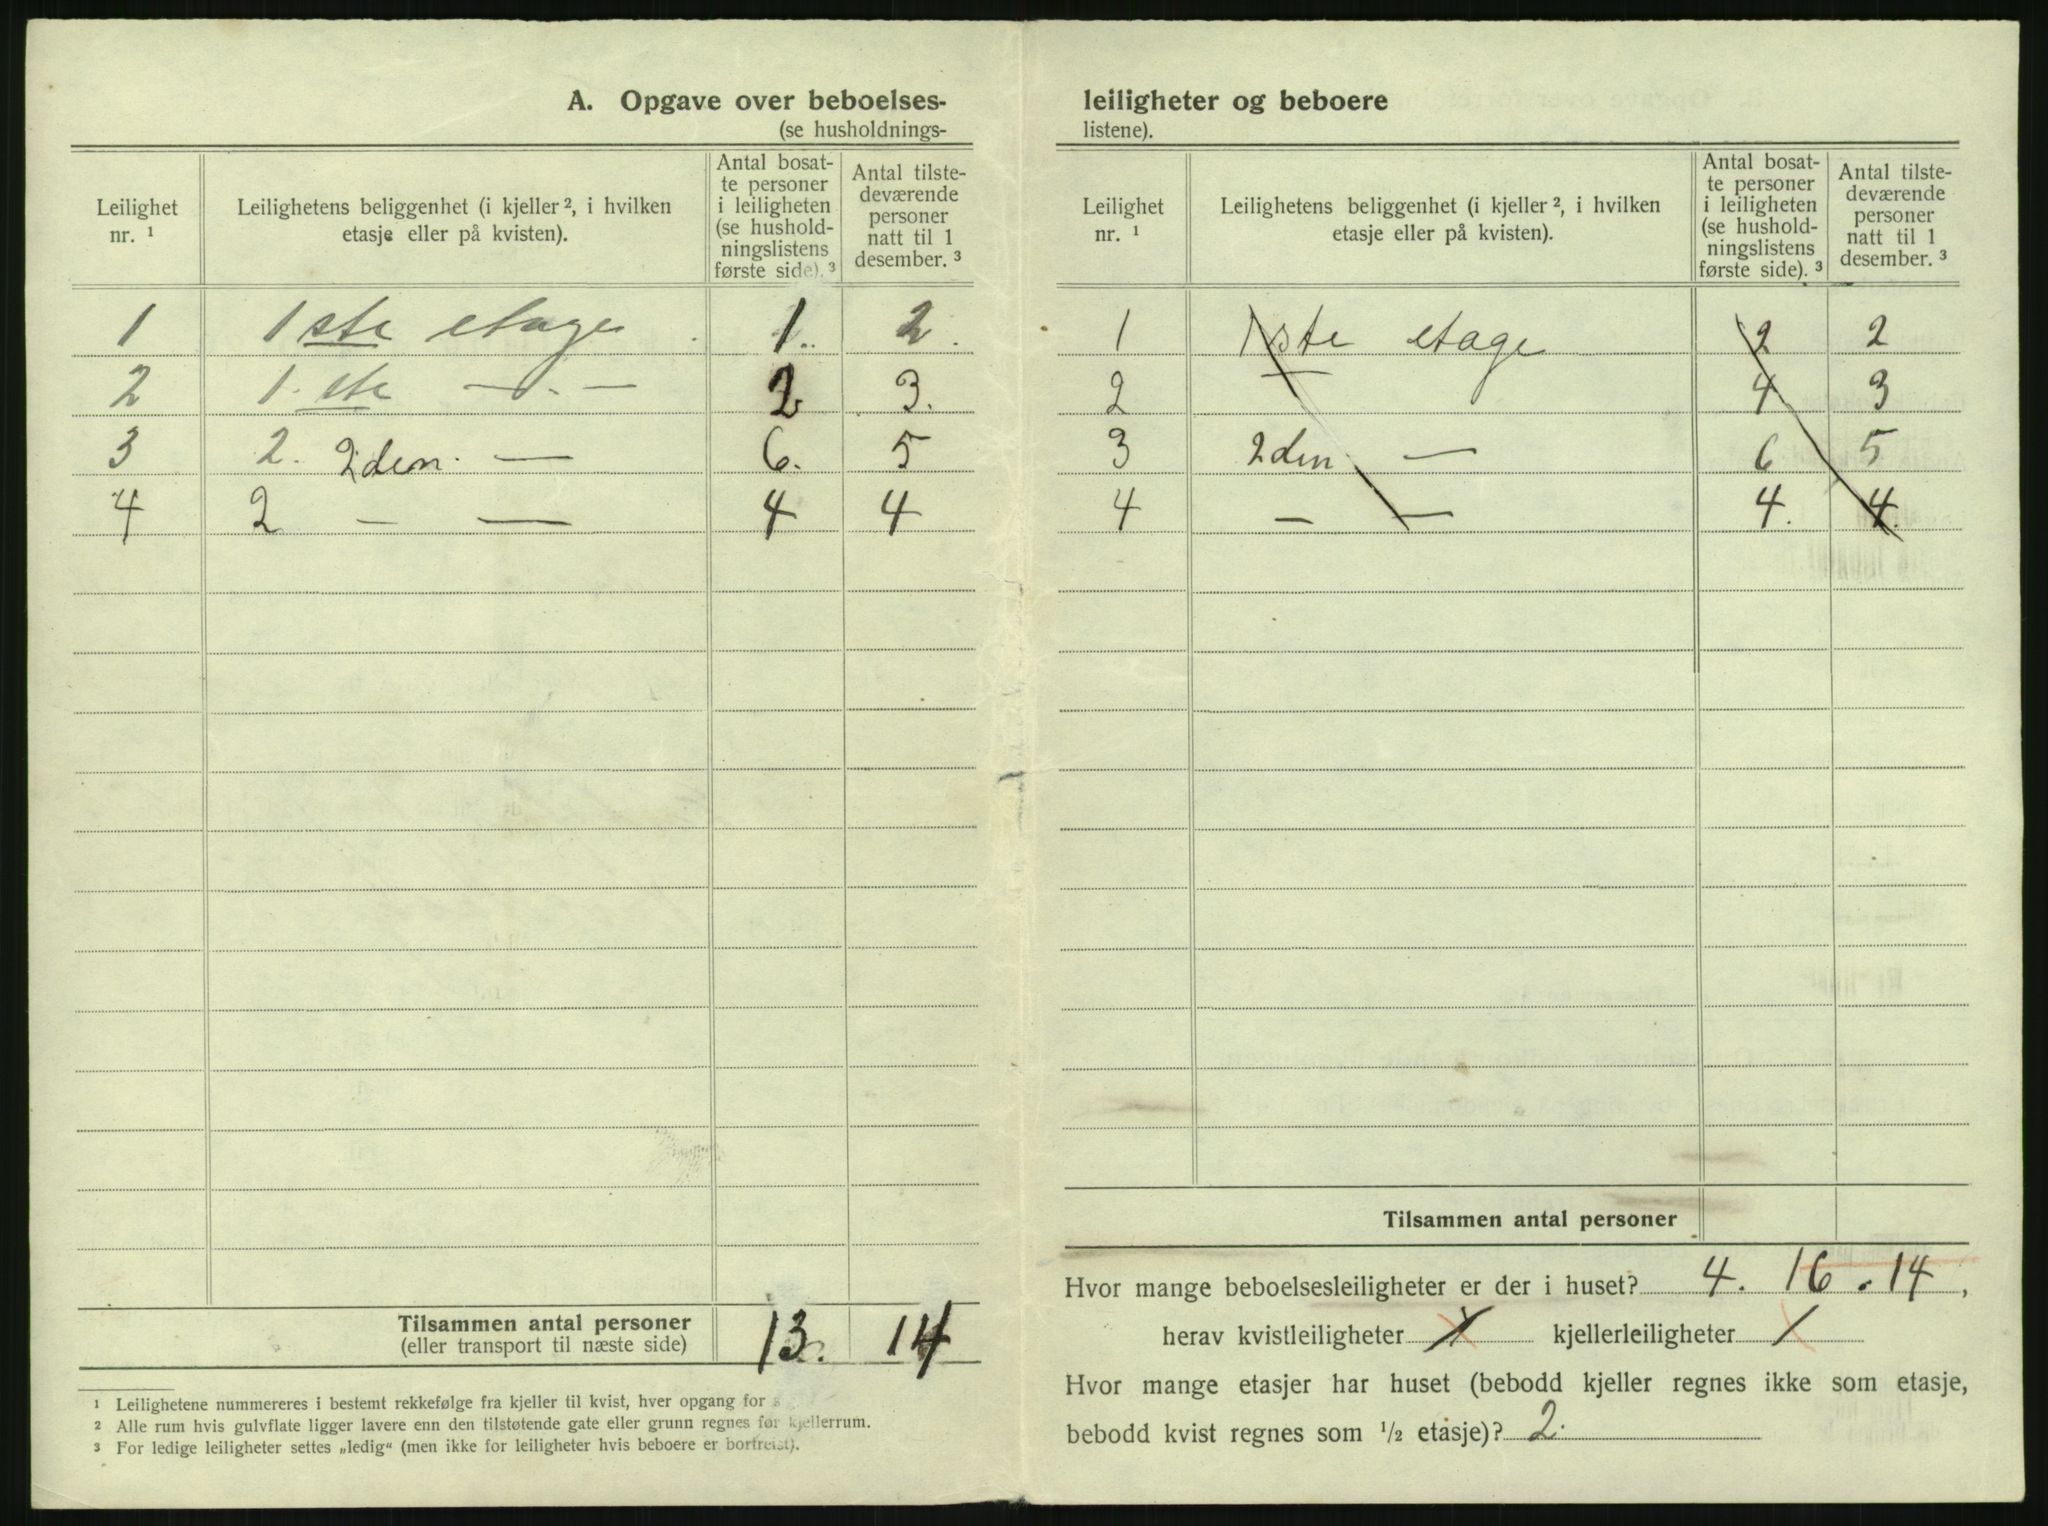 A. Opgave over beboelses-
(se husholdnings-
Leilighet
nr. ¹
Leilighetens beliggenhet (i kjeller ², i hvilken
etasje eller på kvisten).
Antal bosat-
te personer
i leiligheten
(se hushold-
ningslistens
første side). ³
Antal tilste-
deværende
personer
natt til 1
desember. ³
1 1 ste etage 1. 2.
2 1. ste — . — 2 3.
3 2. 2den. — 6. 5
4 2 — — 4 4
Tilsammen antal personer 13. 14
(eller transport til næste side)
¹ Leilighetene nummereres i bestemt rekkefølge fra kjeller til kvist, hver opgang for
² Alle rum hvis gulvflate ligger lavere enn den tilstøtende gate eller grunn regnes for kjellerrum.
³ For ledige leiligheter settes „ledig“ (men ikke for leiligheter hvis beboere er bortreist).
leiligheter og beboere
listene).
Leilighet
nr. ¹
Leilighetens beliggenhet (i kjeller ², i hvilken
etasje eller på kvisten).
Antal bosat-
te personer
i leiligheten
(se hushold-
ningslistens
første side). ³
Antal tilste-
deværende
personer
natt til 1
desember. ³
1 1ste etage 2 2
2 — 4 3
3 2den — 6 5
4 — — 4. 4.
Tilsammen antal personer
Hvor mange beboelsesleiligheter er der i huset? 4. 16 . 14,
herav kvistleiligheter kjellerleiligheter /
Hvor mange etasjer har huset (bebodd kjeller regnes ikke som etasje,
bebodd kvist regnes som ½ etasje)? 2.